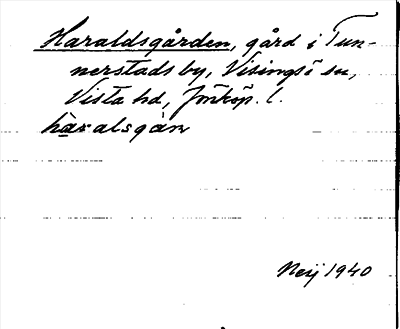 Haraldsgården, gård i Tun-
nerstads by, Visingsö sn,
Vista hd, Jönköp. l.
haralsgàn
Neij 1940